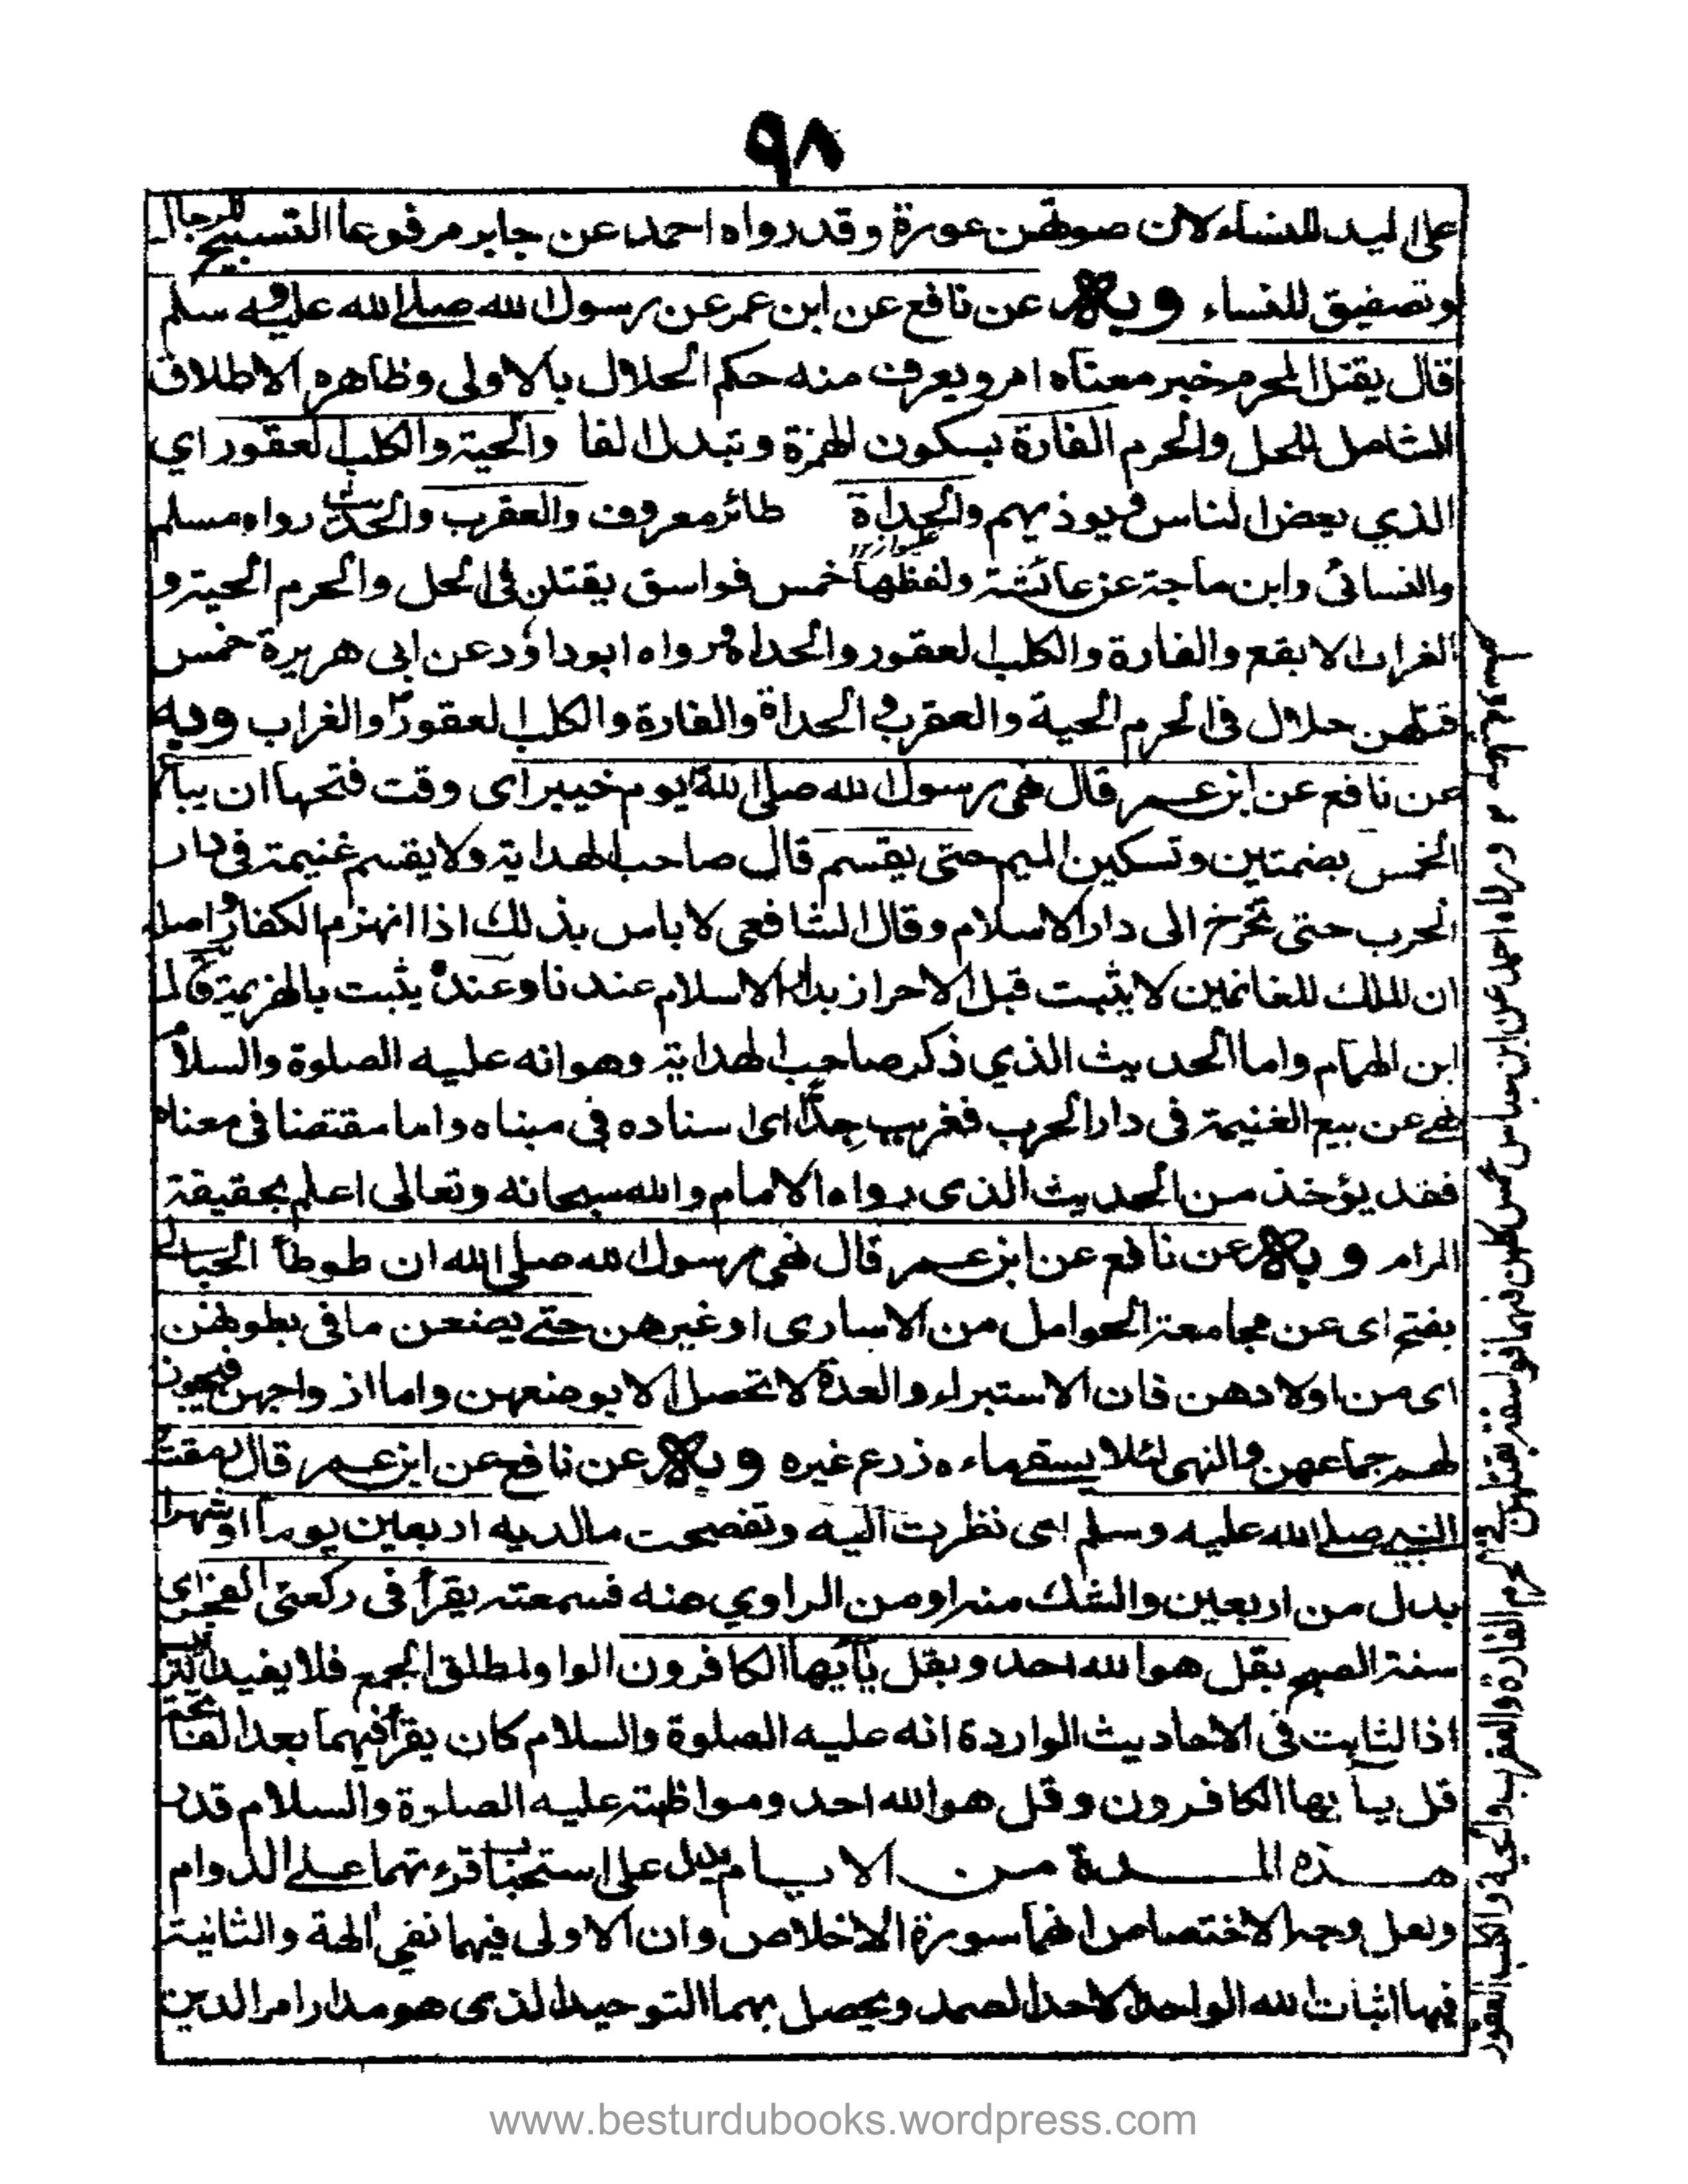 ٩٨
على اليد للنساء لان صوتهن عورة وقد رواه احمد عن جابر مرفوعا التسبيح للرجال
وتصفيق للنساء وبه عن نافع عن ابن عمر عن رسول الله صلى الله عليه وسلم
قال يقتل المحرم خبر معناه امر ويعرف منه حكم الحلال بالاولى وظاهره الاطلاق
الشامل للحل والحرم الفارة بسكون الهمزة وتبدل الفا والحية والكلب العقور اي
الذي يعض الناس ويوذيهم والحدأة طائر معروف والعقرب والحديث رواه مسلم
والنسائى وابن ماجة عن عائشة ولفظها خمس فواسق يقتلن فى الحل والحرم الحية و
الغراب الابقع والفارة والكلب العقور والحداة ورواه ابوداود عن ابى هريرة خمس
قتلهن حلال فى الحرم الحية والعقرب والحداة والفارة والكلب العقور والغراب وبه
عن نافع عن ابن عمر قال نهى رسول الله صلى الله يوم خيبر اى وقت فتحها ان يباع
الخمس بضمتين وتسكين الميم حتى يقسم قال صاحب الهداية ولا يقسم غنيمة فى دار
الحرب حتى تخرج الى دار الاسلام وقال الشافعى لا باس بذلك اذا انهزم الكفار واصله
ان الملك للغانمين لا يثبت قبل الاحراز بدار الاسلام عندنا وعنده يثبت بالهزيمة قال
ابن الهمام واما الحديث الذي ذكر صاحب الهداية وهو انه عليه الصلوة والسلام
نهى عن بيع الغنيمة فى دار الحرب فغريب جدًا اى اسناده فى مبناه واما مقتضا فى معناه
فقد يؤخذ من الحديث الذى رواه الامام والله سبحانه وتعالى اعلم بحقيقة
المرام وبه عن نافع عن ابن عمر قال نهى رسول الله صلى الله ان طوطأ الحبالى
بفتح اى عن مجامعة الحوامل من الاسارى او غيرهن حتى يضعن ما فى بطونهن
اى من اولادهن فان الاستبراء والعدة لا تحصل الا بوضعهن واما ازواجهن فيجوز
لهم جماعهن والنهى لئلا يسقى ماءه زرع غيره وبه عن نافع عن ابن عمر قال رمقت
النبى صلى الله عليه وسلم اى نظرت اليه وتفصحت مالديه اربعين يوما او شهرا
بدل من اربعين والشك منه او من الراوي عنه فسمعته يقرأ فى ركعتى الفجر اى
سنة الصبح بقل هو الله احد وبقل يأيها الكافرون الواو لمطلق الجمع فلا يفيد الترتيب
اذ الثابت فى الاحاديث الواردة انه عليه الصلوة والسلام كان يقرأ فيهما بعد الفاتحة
قل يأيها الكافرون وقل هو الله احد ومواظبته عليه الصلوة والسلام قدر
هذه المدة من الايام يدل على استحباب قرءتهما على الدوام
ولعل وجه الاختصاص انهما سورة الاخلاص وان الاولى فيها نفى الهة والثانية
فيها اثبات الله الواحد الاحد الصمد ويحصل بهما التوحيد الذى هو مدار امر الدين
ورواه احمد عن ابن عباس خمس كلهن فيها فواسقة تقتلهن فى الحرم الفارة والعقرب والحية والكلب العقور
www.besturdubooks.wordpress.com